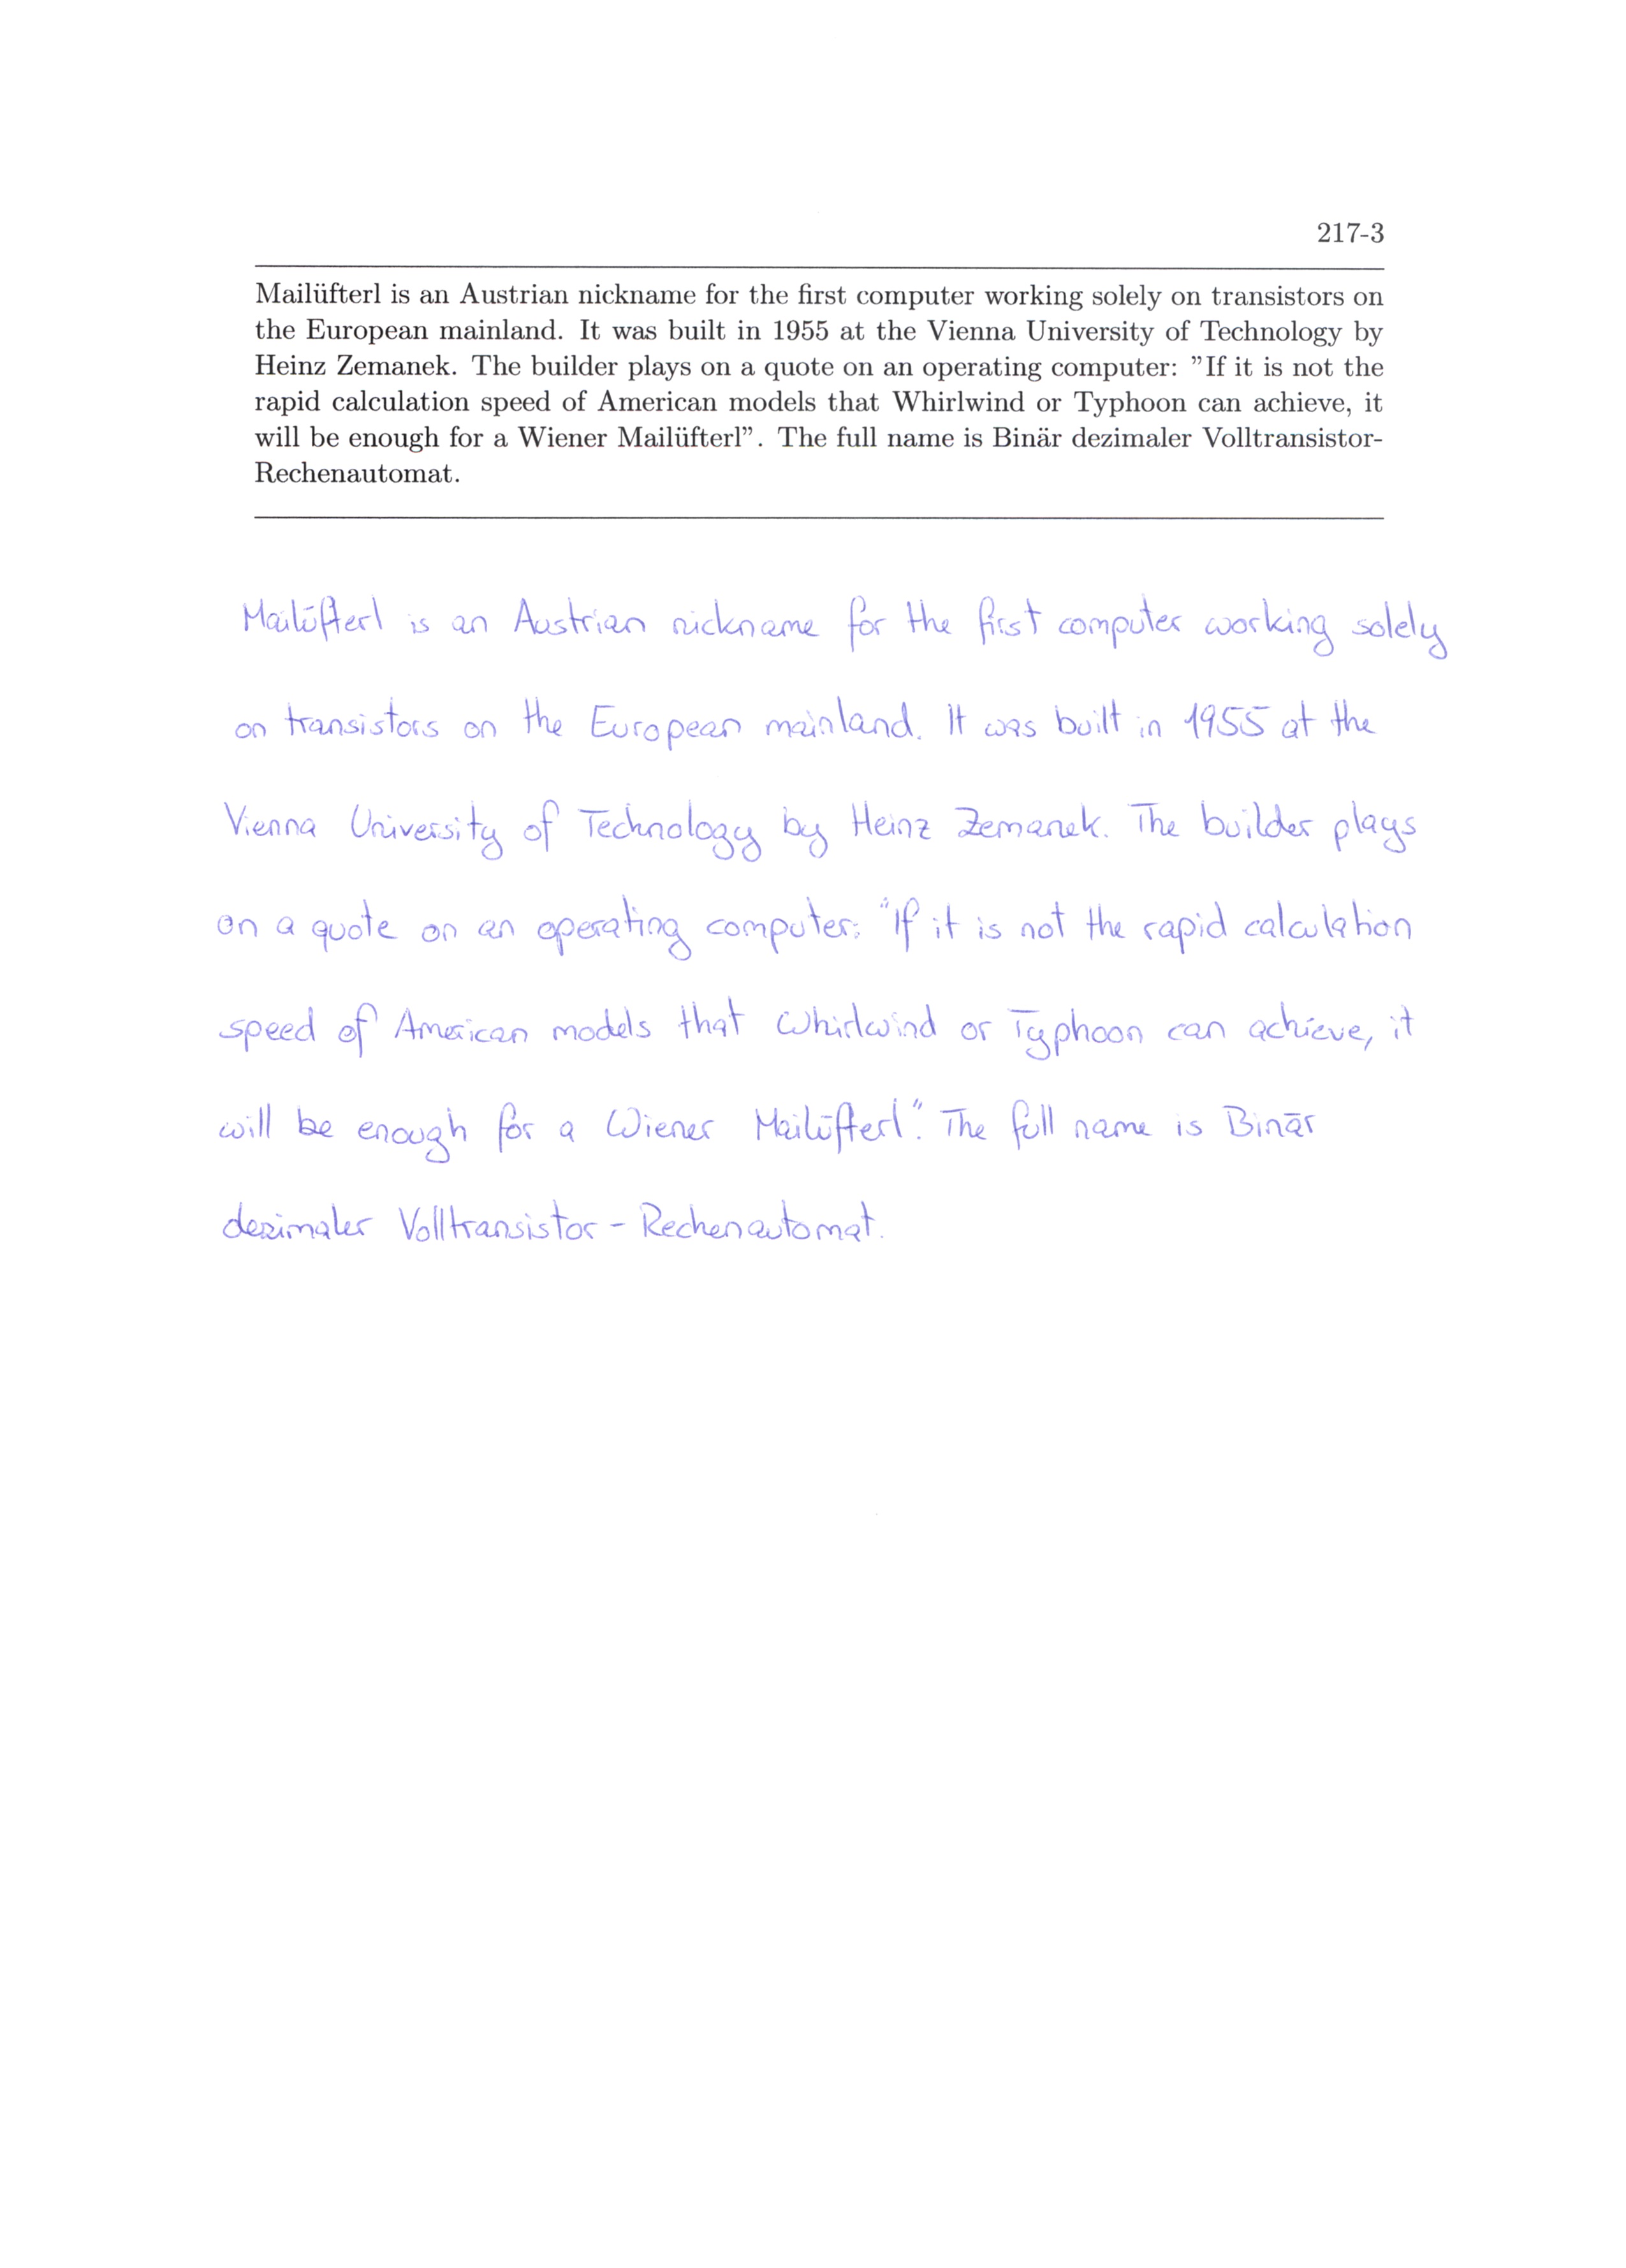 217-3
Mailüfterl is an Austrian nickname for the first computer working solely on transistors on
the European mainland. It was built in 1955 at the Vienna University of Technology by
Heinz Zemanek. The builder plays on a quote on an operating computer: ”If it is not the
rapid calculation speed of American models that Whirlwind or Typhoon can achieve, it
will be enough for a Wiener Mailüfterl”. The full name is Binär dezimaler Volltransistor-
Rechenautomat.
Mailüfterl is an Austrian nickname for the first computer working solely
on transistors on the European mainland. It was built in 1955 at the
Vienna University of Technology by Heinz Zemanek. The builder plays
on a quote on an operating computer: "If it is not the rapid calculation
speed of American models that Whirlwind or Typhoon can achieve, it
will be enough for a Wiener Mailüfterl". The full name is Binär
dezimaler Volltransistor - Rechenautomat.